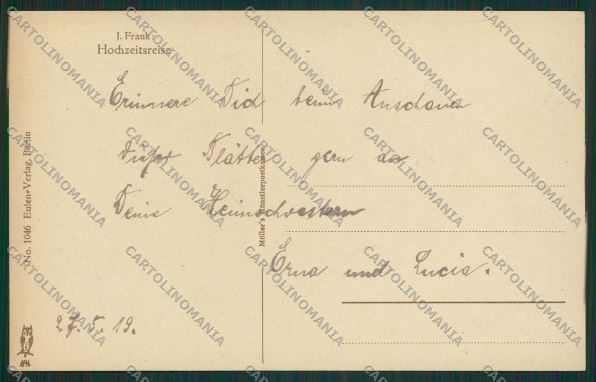 J. Frank:
Hochzeitsreise
Erinnere Dich beim Anschaun
dieser Blätter gern an
Deine Heimschwestern
Erna und Lucia.
27. 5. 19.
No. 1046 Eulen-Verlag, Berlin
Möller's Künstlerpostkarten
CARTOLINOMANIA